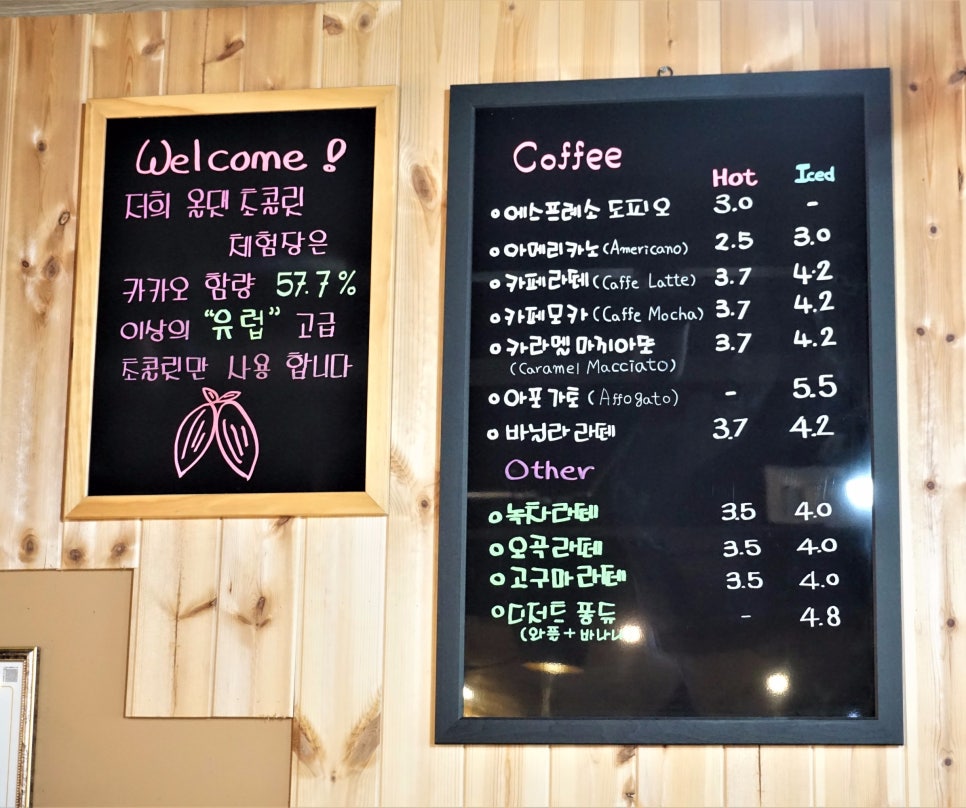 Welcome !
저희 올댓 초콜릿
체험장은
카카오 함량 57.7%
이상의 "유럽" 고급
초콜릿만 사용 합니다
Coffee
Hot Iced
에스프레소 도피오 3.0 -
아메리카노 (Americano) 2.5 3.0
카페라떼 (Caffe Latte) 3.7 4.2
카페모카 (Caffe Mocha) 3.7 4.2
카라멜 마끼아또 3.7 4.2
(Caramel Macciato)
아포가토 (Affogato) - 5.5
바닐라 라떼 3.7 4.2
Other
녹차라떼 3.5 4.0
오곡라떼 3.5 4.0
고구마라떼 3.5 4.0
디저트 퐁듀 - 4.8
(와플 + 바나나